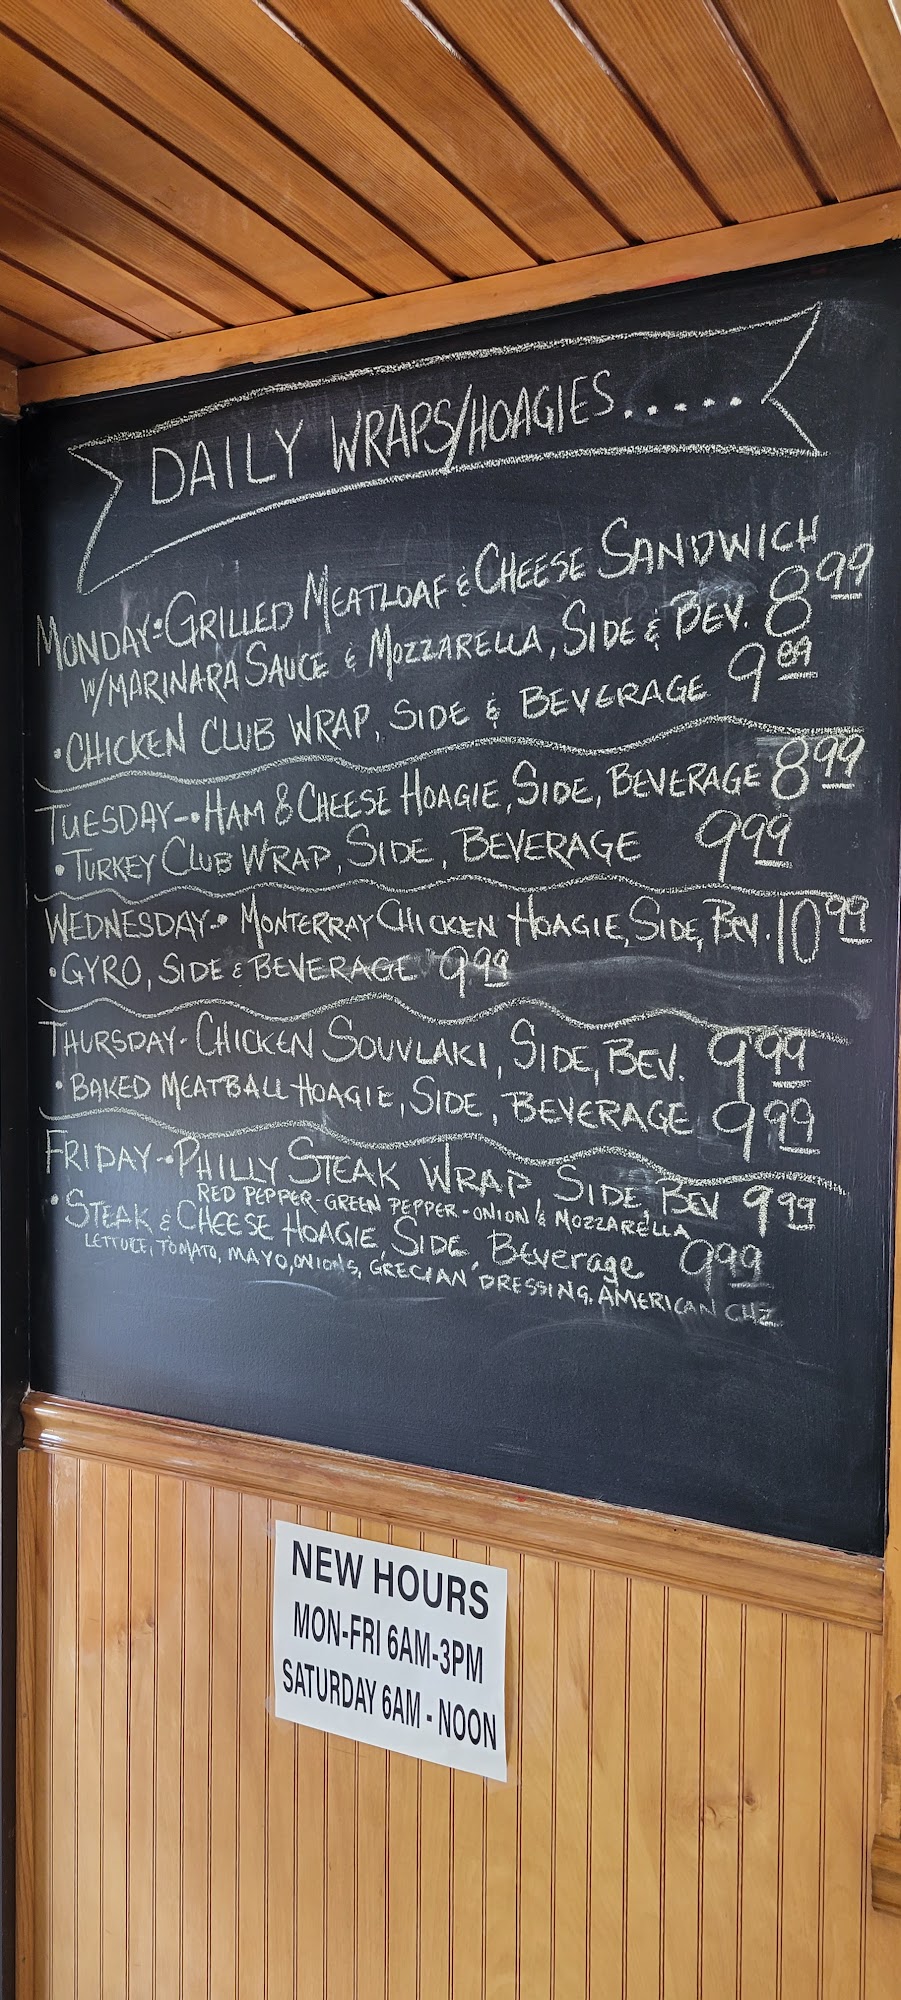 DAILY WRAPS/HOAGIES.....
MONDAY-•GRILLED MEATLOAF & CHEESE SANDWICH
W/MARINARA SAUCE & MOZZARELLA, SIDE & BEV. 8.99
•CHICKEN CLUB WRAP, SIDE & BEVERAGE 9
TUESDAY-•HAM & CHEESE HOAGIE, SIDE, BEVERAGE 8.99
•TURKEY CLUB WRAP, SIDE, BEVERAGE 9.99
WEDNESDAY-• MONTERRAY CHICKEN HOAGIE, SIDE, BEV. 10.99
•GYRO, SIDE & BEVERAGE 9.99
THURSDAY-CHICKEN SOUVLAKI, SIDE, BEV. 9.99
•BAKED MEATBALL HOAGIE, SIDE, BEVERAGE 9.99
FRIDAY-•PHILLY STEAK WRAP SIDE, BEV 9.99
RED PEPPER-GREEN PEPPER-ONION & MOZZARELLA
•STEAK & CHEESE HOAGIE, SIDE Beverage 9.99
LETTUCE, TOMATO, MAYO, ONIONS, GRECIAN DRESSING, AMERICAN CHZ
NEW HOURS
MON-FRI 6AM-3PM
SATURDAY 6AM - NOON